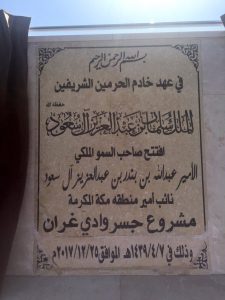 بسم الله الرحمن الرحيم
في عهد خادم الحرمين الشريفين
حفظه الله
الملك سلمان بن عبدالعزيز آل سعود
افتتح صاحب السمو الملكي
الأمير عبدالله بن بندر بن عبدالعزيز آل سعود
نائب أمير منطقه مكة المكرمة
مشروع جسر وادي غران
وذلك في ١٤٣٩/٤/٧هـ الموافق ٢٠١٧/١٢/٢٥م